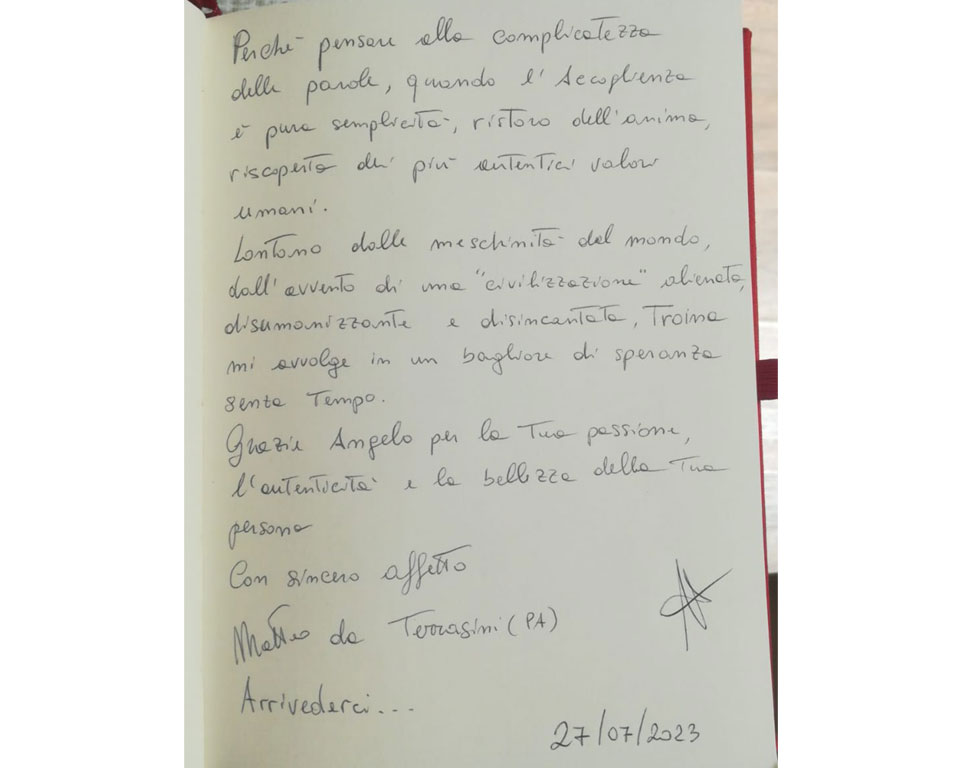 Perchè pensare alla complicatezza
delle parole, quando l'Accoglienza
è pura semplicità, ristoro dell'anima,
riscoperta dei più autentici valori
umani.
Lontano dalle meschinità del mondo,
dall'avvento di una "civilizzazione" alienata,
disumanizzante e disincantata, Troina
mi avvolge in un bagliore di speranza
senza Tempo.
Grazie Angelo per la Tua passione,
l'autenticità e la bellezza della Tua
persona
Con sincero affetto
Matteo da Terrasini (PA)
Arrivederci...
27/07/2023